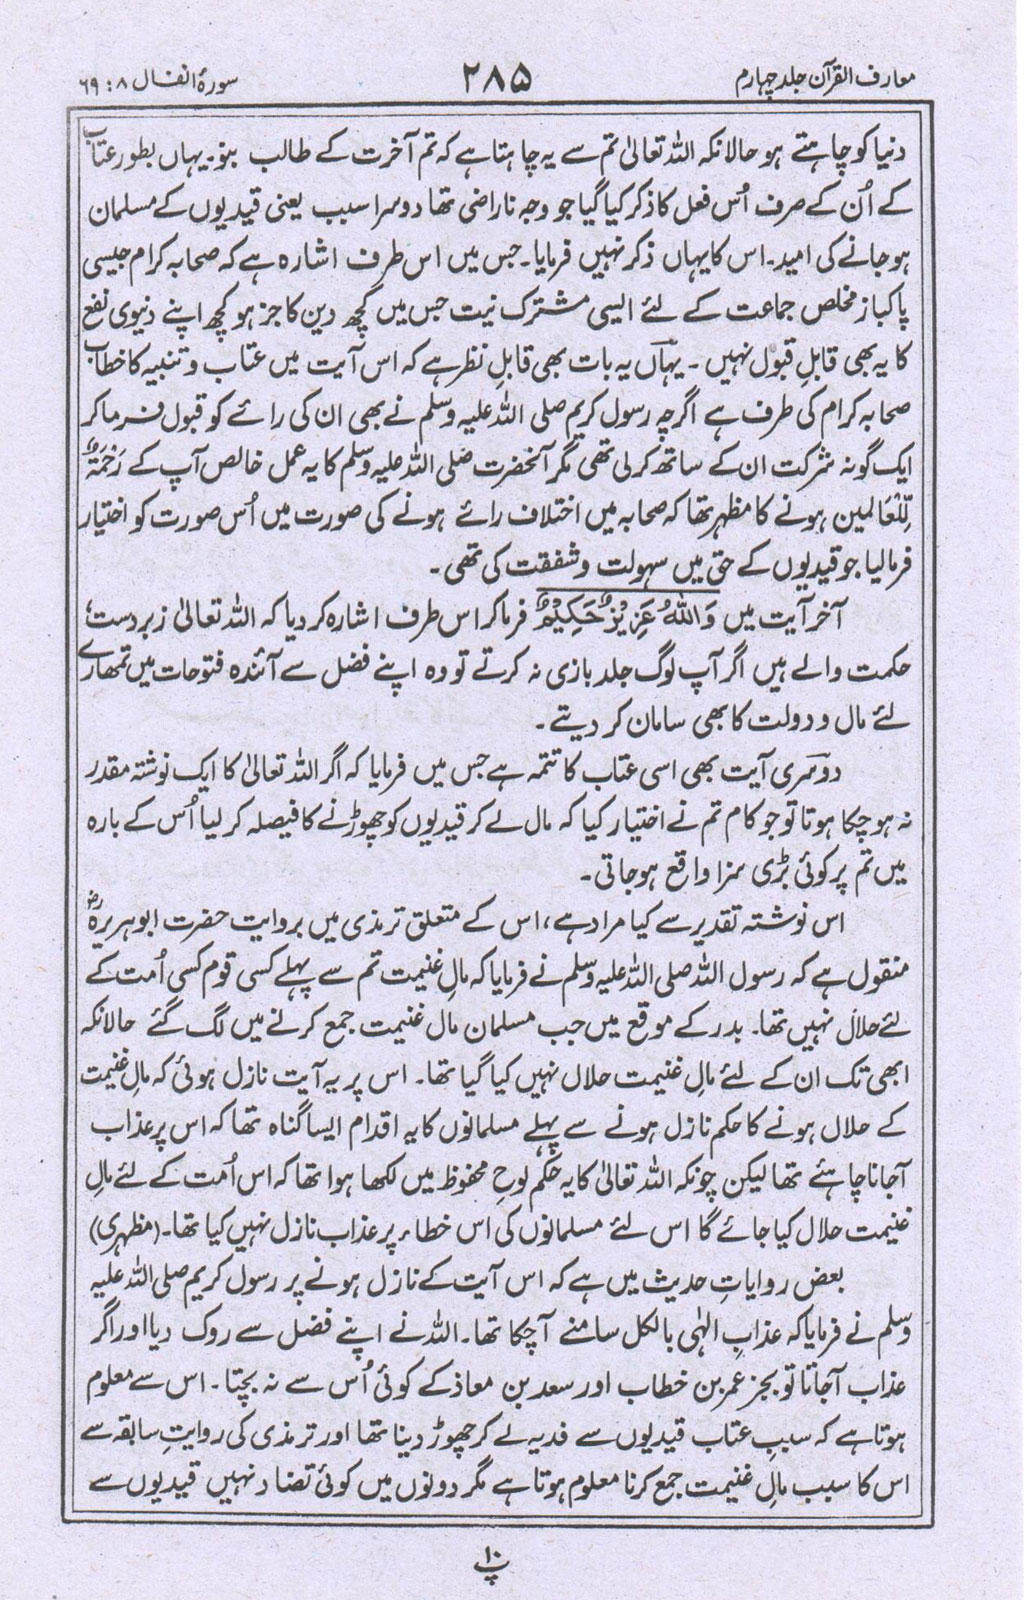 معارف القرآن جلد چہارم
۲۸۵
سورۂ انفال ۸ : ۶۹
دنیا کو چاہتے ہو حالانکہ اللہ تعالیٰ تم سے یہ چاہتا ہے کہ تم آخرت کے طالب بنو۔ یہاں بطور عتاب
کے اُن کے صرف اُس فعل کا ذکر کیا گیا جو وجہ ناراضی تھا دوسرا سبب یعنی قیدیوں کے مسلمان
ہو جانے کی امید۔ اس کا یہاں ذکر نہیں فرمایا۔ جس میں اس طرف اشارہ ہے کہ صحابہ کرام جیسی
پاکباز مخلص جماعت کے لئے ایسی مشترک نیت جس میں کچھ دین کا جز ہو کچھ اپنے دنیوی نفع
کا یہ بھی قابلِ قبول نہیں ۔ یہاں یہ بات بھی قابلِ نظر ہے کہ اس آیت میں عتاب و تنبیہ کا خطاب
صحابہ کرام کی طرف ہے اگرچہ رسول کریم صلی اللہ علیہ وسلم نے بھی ان کی رائے کو قبول فرما کر
ایک گونہ شرکت ان کے ساتھ کر لی تھی مگر آنحضرت صلی اللہ علیہ وسلم کا یہ عمل خالص آپ کے رَحْمَۃٌ
لِّلْعَالمین ہونے کا مظہر تھا کہ صحابہ میں اختلاف رائے ہونے کی صورت میں اُس صورت کو اختیار
فرمالیا جو قیدیوں کے حق میں سہولت و شفقت کی تھی ۔
آخر آیت میں وَاللّٰهُ عَزِيْزٌ حَكِيْمٌ فرما کر اس طرف اشارہ کر دیا کہ اللہ تعالیٰ زبردست،
حکمت والے ہیں اگر آپ لوگ جلد بازی نہ کرتے تو وہ اپنے فضل سے آئندہ فتوحات میں تمھارے
لئے مال و دولت کا بھی سامان کر دیتے ۔
دوسری آیت بھی اسی عتاب کا تتمہ ہے جس میں فرمایا کہ اگر اللہ تعالیٰ کا ایک نوشتہ مقدر
نہ ہو چکا ہوتا تو جو کام تم نے اختیار کیا کہ مال لے کر قیدیوں کو چھوڑنے کا فیصلہ کر لیا اُس کے بارہ
میں تم پر کوئی بڑی سزا واقع ہو جاتی ۔
اس نوشتہ تقدیر سے کیا مراد ہے، اس کے متعلق ترمذی میں بروایت حضرت ابوہریرہؓ
منقول ہے کہ رسول اللہ صلی اللہ علیہ وسلم نے فرمایا کہ مالِ غنیمت تم سے پہلے کسی قوم کسی اُمت کے
لئے حلال نہیں تھا۔ بدر کے موقع میں جب مسلمان مال غنیمت جمع کرنے میں لگ گئے حالانکہ
ابھی تک ان کے لئے مالِ غنیمت حلال نہیں کیا گیا تھا۔ اس پر یہ آیت نازل ہوئی کہ مالِ غنیمت
کے حلال ہونے کا حکم نازل ہونے سے پہلے مسلمانوں کا یہ اقدام ایسا گناہ تھا کہ اس پر عذاب
آجانا چاہئے تھا لیکن چونکہ اللہ تعالیٰ کا یہ حکم لوحِ محفوظ میں لکھا ہوا تھا کہ اس اُمت کے لئے مالِ
غنیمت حلال کیا جائے گا اس لئے مسلمانوں کی اس خطاء پر عذاب نازل نہیں کیا تھا۔ (مظہری)
بعض روایاتِ حدیث میں ہے کہ اس آیت کے نازل ہونے پر رسول کریم صلی اللہ علیہ
وسلم نے فرمایا کہ عذابِ الٰہی بالکل سامنے آچکا تھا۔ اللہ نے اپنے فضل سے روک دیا اور اگر
عذاب آجاتا تو بجز عمر بن خطاب اور سعد بن معاذ کے کوئی اُس سے نہ بچتا۔ اس سے معلوم
ہوتا ہے کہ سببِ عتاب قیدیوں سے فدیہ لے کر چھوڑ دینا تھا اور ترمذی کی روایتِ سابقہ سے
اس کا سبب مالِ غنیمت جمع کرنا معلوم ہوتا ہے مگر دونوں میں کوئی تضاد نہیں قیدیوں سے
۱۰
پ